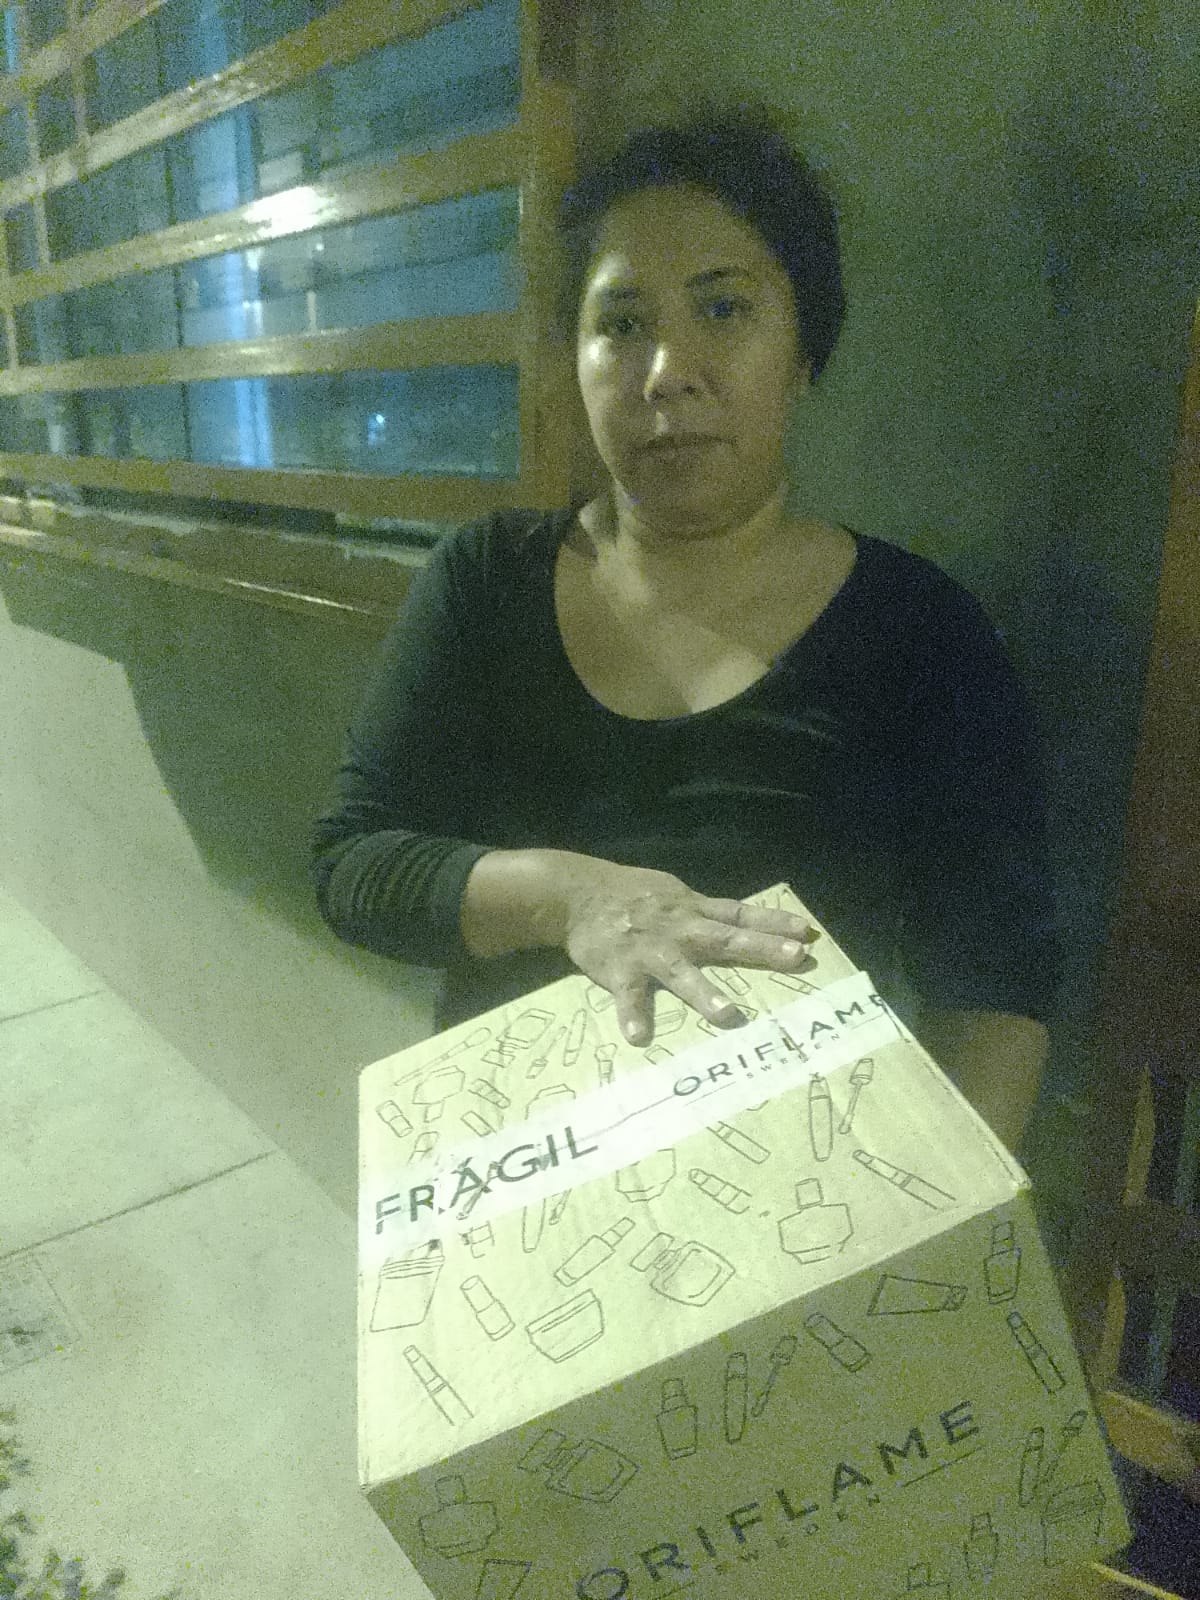 ORIFLAME
SWEDEN
FRÁGIL
ORIFLAME
SWEDEN